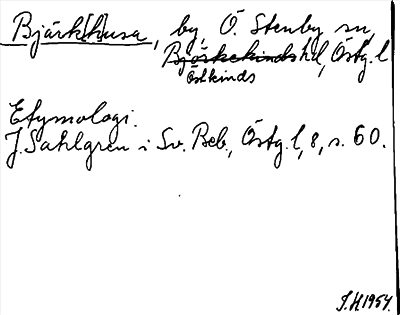 Bjärk[h]usa, by, Ö. Stenby sn,
Björkekinds hd, Östg. l
Östkinds
Etymologi.
J. Sahlgren i Sv. Beb., Östg. l, 8, s. 60.
S.H. 1954.